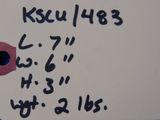 KSCU/483
L. 7"
W. 6"
H. 3"
wgt. 2 lbs.